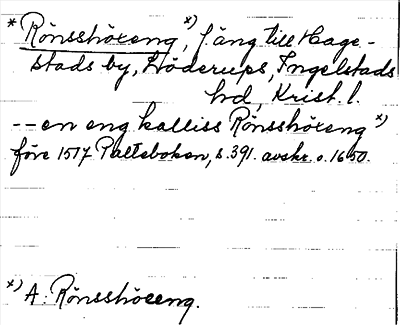 * Rönsshöxeng, x) f. äng till Hage-
stads by, Löderups, Ingelstads
hd, Krist. l.
-- en eng kalliss Rönsshöxeng x)
före 1517 Palteboken, s. 391. avskr. o. 1650.
x) A: Rönsshöeeng.